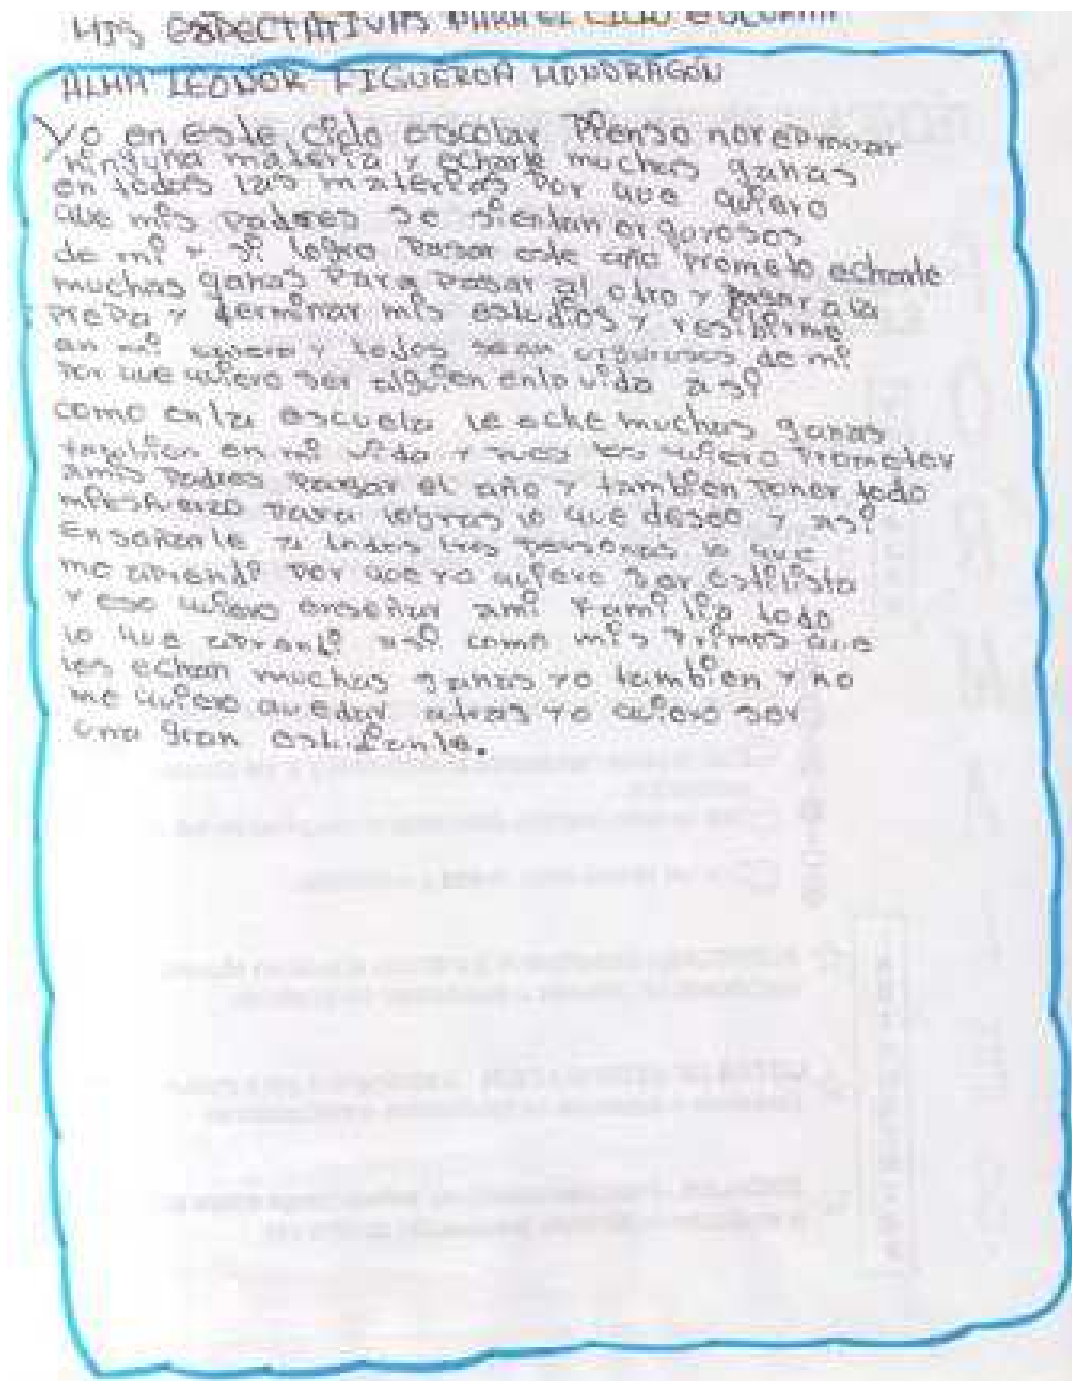 MIS EXPECTATIVAS PARA EL CICLO ESCOLAR
ALMA LEONOR FIGUEROA MONDRAGON
Yo en este ciclo escolar Pienso no reprovar
ninguna materia y echarle muchas ganas
en todas las materias por que quiero
que mis padres se sientan orgurosos
de mi y si logro Pasar este año prometo echarle
muchas ganas Para pasar al otro y pasar ala
prepa y terminar mis estudios y resibirme
en mi y todos sean orgurosos de mi
Por que quiero ser alguien enla vida asi
como enla escuela le eche muchas ganas
tambien en mi vida y pues les quiero Prometer
amis Padres Pasar el año y tambien Poner todo
miesfuerzo para lograr lo que deseo y asi
Enseñarle a todas las personas lo que
me aprendi por que yo quiero ser estilista
y eso quiero enseñar ami Familia todo
lo que aprendi asi como mis Primos que
les echan muchas ganas yo tambien y no
me quiero quedar atras yo quiero ser
una gran estudiante.